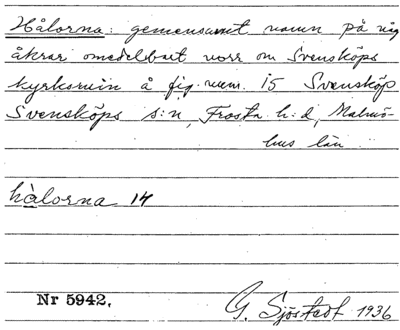 Hålorna: gemensamt namn på någ
åkrar omedelbart norr om Svensköps
kyrkoruin å fig. num. 15 Svensköp
Svensköps s:n, Frosta h:d, Malmö-
hus län
hålorna 14
Nr 5942.
G. Sjöstedt 1936